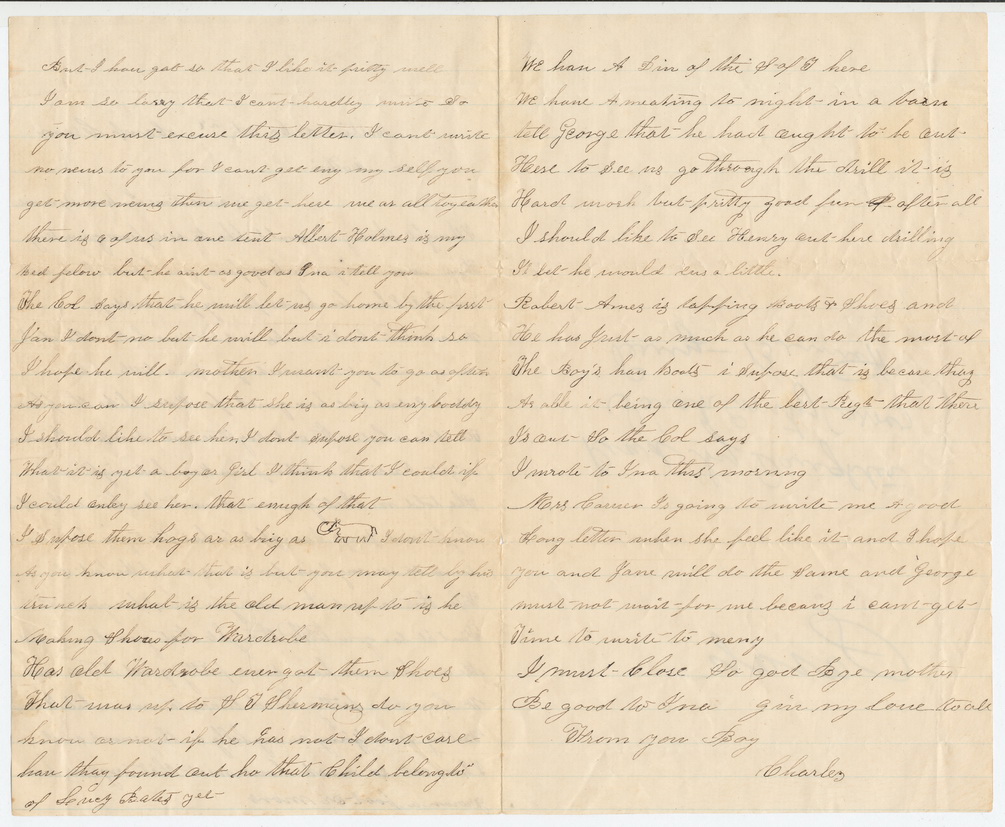 But I hav got so that I like it pritty well
I am so lazzy that I cant hardley move So
you must excuse this letter. I cant write
no news to you for I cant get eny my self you
get more news then we get here we ar all toyeather
there is 6 of us in one tent Albert Holmes is my
bed felow but he aint as good as Ina i tell you
The Col Says that he will let us go home by the first
Jan I dont no but he will but i dont think so
I hope he will. mother I want you to go as often
As you can I supose that she is as big as eny boddy
I should like to see her, I dont supose you can tell
What it is yet a boy or Girl I think that I could if
I could onley see her. that enugh of that
I Supose them hogs ar as big as I dont know
As you know what that is but you may tell by his
trunck what is the old man up to is he
Making Shoes for Wardrobe
Has old Wardrobe ever got them Shoes
That was up to S T Shermans do you
know or not if he has not I dont care
hav thay found out ho that Child belongs
of Lucy Bates yet
We hav A Div of the S of T here
We have A meating to night in a barn
tell George that he had ought to be out
Here to See us go through the drill it is
Hard work but pritty good fun after all
I should like to See Henry out here drilling
I'l bet he would sus a little.
Robert Ames is tapping Boots & Shoes and
He has Just as much as he can do the most of
The Boys hav Boots i supose that is becase thay
Ar able it being one of the best Regt that there
Is out So the Col says
I wrote to Ina this morning
Mrs Carver Is going to write me A good
Long letter when she feel like it and I hope
you and Jane will do the Same and George
must not wait for me becaus i cant get
Time to write to meny
I must Close So god Bye mother
Be good to Ina giv my love to all
From you Boy
Charles